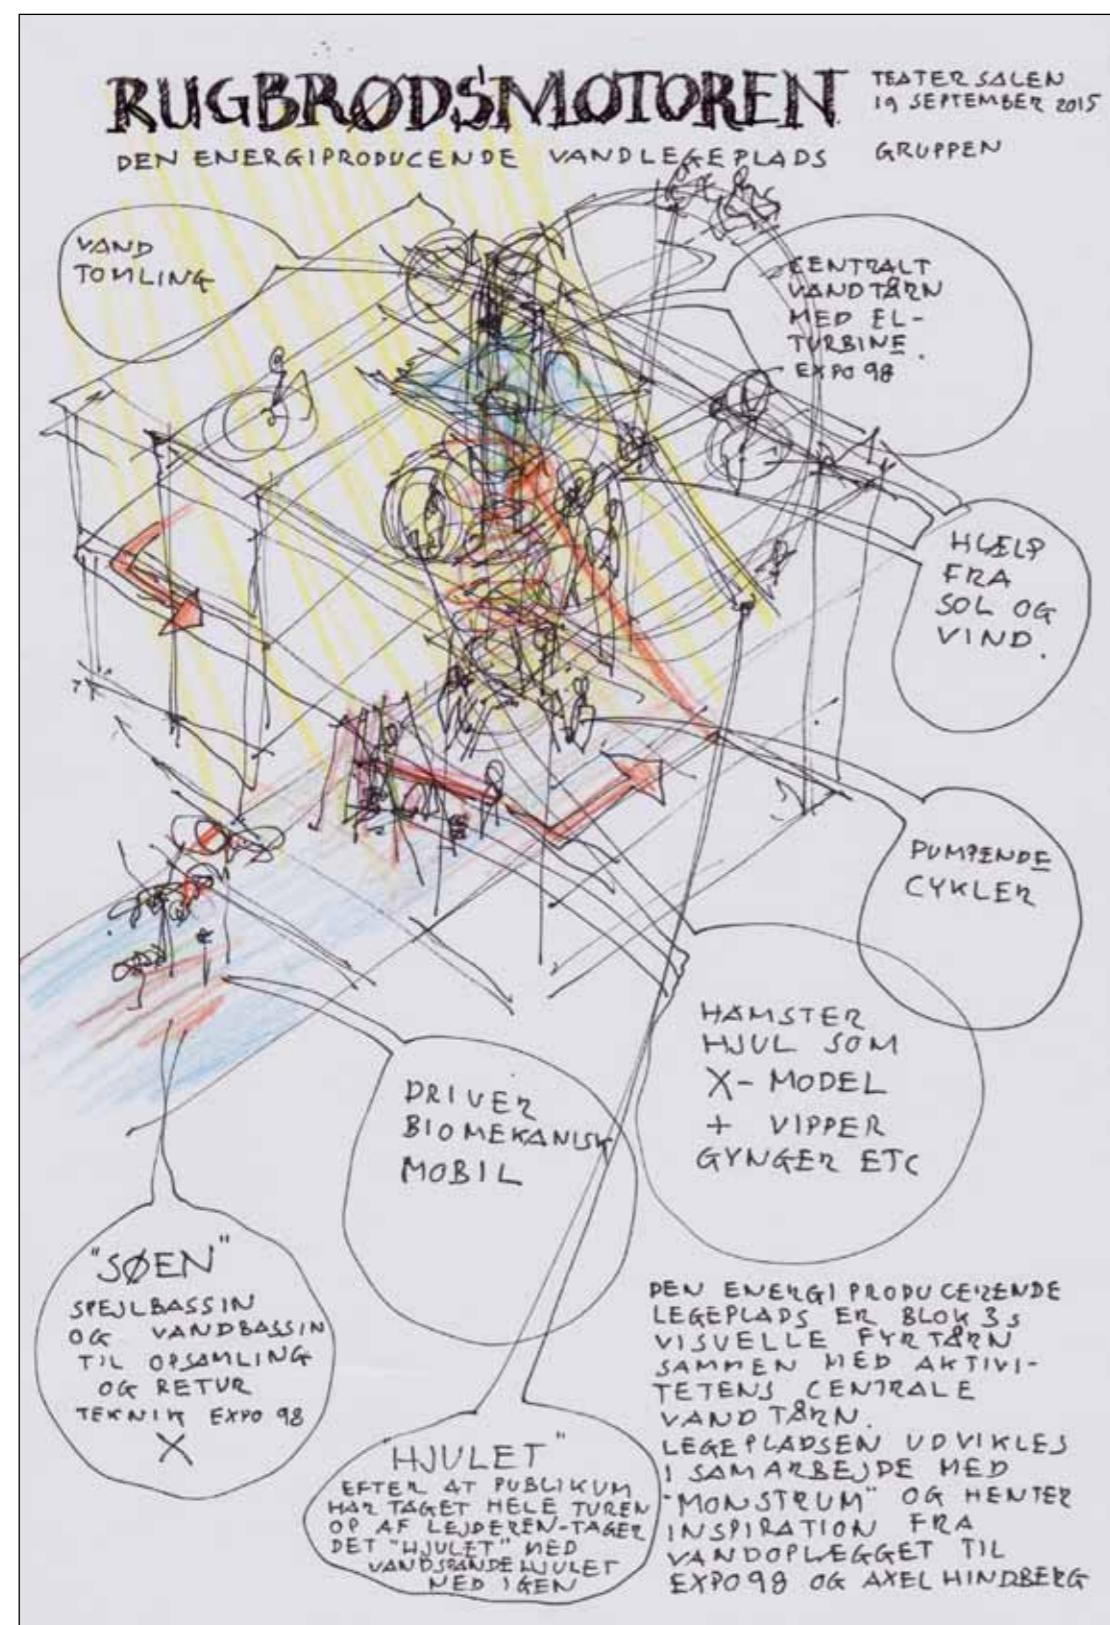 RUGBRØDSMOTOREN
TEATER SALEN
19 SEPTEMBER 2015
DEN ENERGIPRODUCENDE VANDLEGEPLADS
GRUPPEN
VAND
TOMLING
CENTRALT
VANDTÅRN
MED EL-
TURBINE.
EXPO 98
HJÆLP
FRA
SOL OG
VIND.
PUMPENDE
CYKLER
HAMSTER
HJUL SOM
X-MODEL
+ VIPPER
GYNGER ETC
DRIVER
BIOMEKANISK
MOBIL
"SØEN"
SPEJLBASSIN
OG VANDBASSIN
TIL OPSAMLING
OG RETUR
TEKNIK EXPO 98
X
"HJULET"
EFTER AT PUBLIKUM
HAR TAGET HELE TUREN
OP AF LEJDEREN-TAGER
DET "HJULET" NED
VANDSPANDEHJULET
NED IGEN
DEN ENERGIPRODUCERENDE
LEGEPLADS ER BLOK 3s
VISUELLE FYRTÅRN
SAMMEN MED AKTIVI-
TETENS CENTRALE
VANDTÅRN.
LEGEPLADSEN UDVIKLES
I SAMARBEJDE MED
"MONSTRUM" OG HENTER
INSPIRATION FRA
VANDOPLÆGGET TIL
EXPO98 OG AXEL HINDBERG